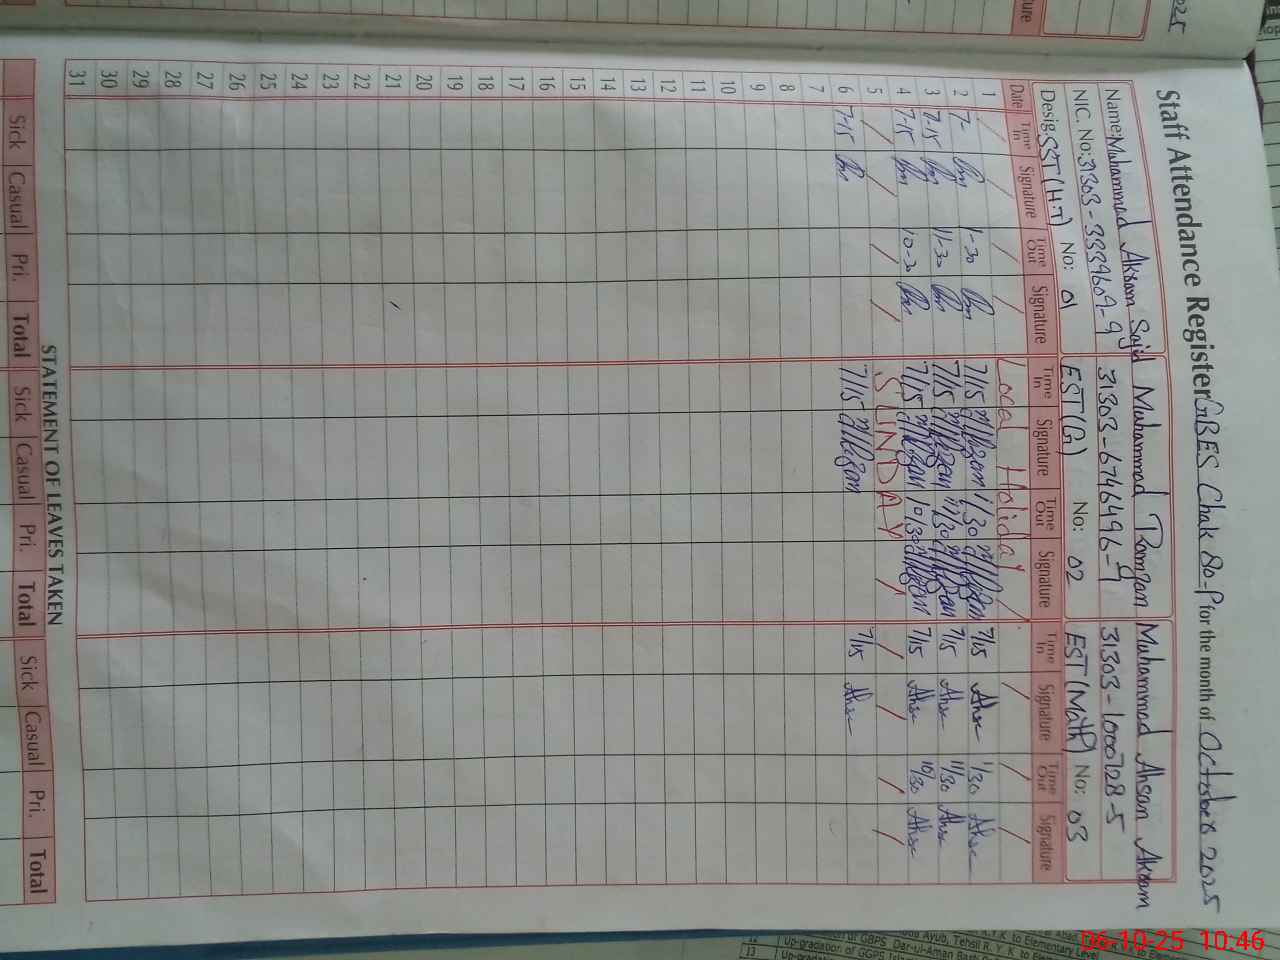 Staff Attendance Register GBES Chak 80-P for the month of October 2025
Name: Muhammad Akram Sajid Muhammad Ramzan Muhammad Ahsan Akram
NIC. No: 31303-3339609-9 31303-6746496-9 31303-1000728-5
Desig: SST (H.T) No: 01 EST (G) No: 02 EST (Math) No: 03
Date Time In Signature Time Out Signature Time In Signature Time Out Signature Time In Signature Time Out Signature
1 Local Holiday
2 7- 1-30 7/15 1/30 7/15 1/30
3 7-15 11-30 7/15 11/30 7/15 11/30
4 7-15 10-30 7/15 10/30 7/15 10/30
5 SUNDAY
6 7-15 7/15 7/15
7
8
9
10
11
12
13
14
15
16
17
18
19
20
21
22
23
24
25
26
27
28
29
30
31
STATEMENT OF LEAVES TAKEN
Sick Casual Pri. Total Sick Casual Pri. Total Sick Casual Pri. Total
13
06-10-25 10:46